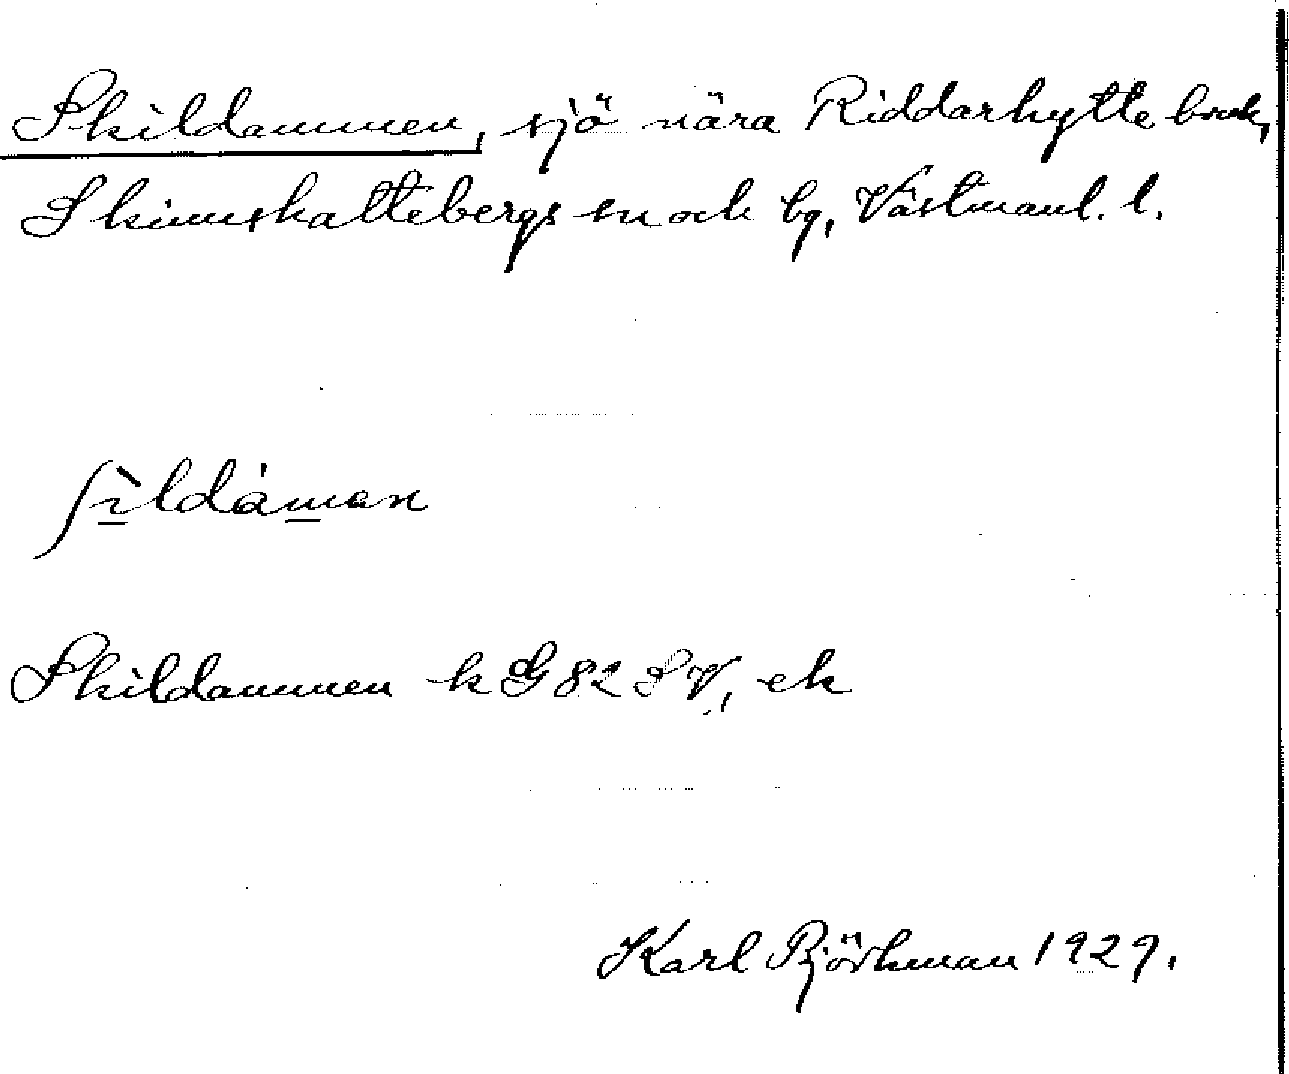 Skildammen, sjö nära Riddarhytte bruk,
Skinnskattebergs sn och bg, Västmanl. l.
ʃìldáman
Skildammen k G 82 SV, ek
Karl Björkman 1929.